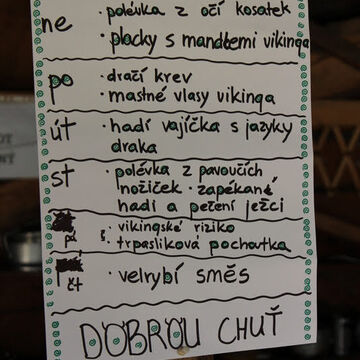 · polévka z očí kosatek
ne
· placky s mandlemi vikinga
po
· dračí krev
· mastné vlasy vikinga
út
· hadí vajíčka s jazyky
draka
st
· polévka z pavoučích
nožiček · zapékané
hadi a pečení ježci
pá
· vikingské riziko
· trpaslíková pochoutka
čt
· velrybí směs
DOBROU CHUŤ